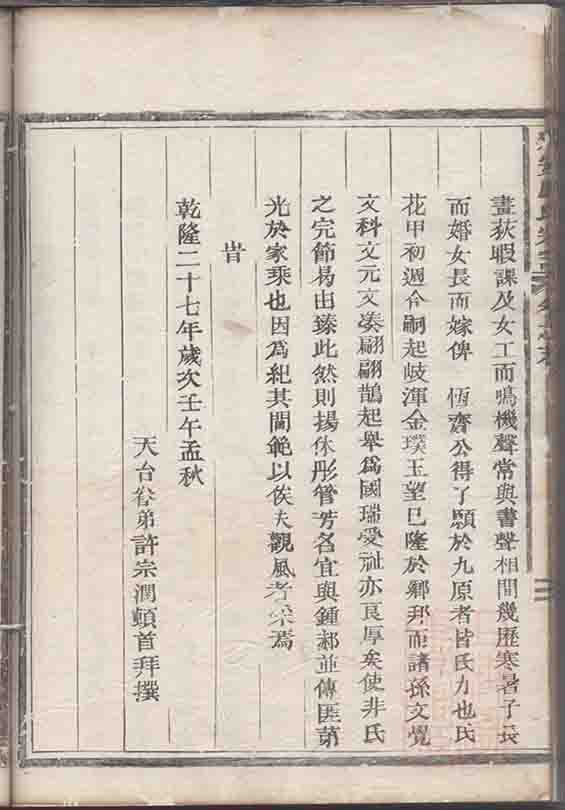 畫荻暇課及女工而鳴機聲常與書聲相間幾歷寒暑子長
而婚女長而嫁俾 恆齋公得了願於九原者皆氏力也氏
花甲初週令嗣起岐渾金璞玉望已隆於鄉邦而諸孫文覺
文科文元文葵翩翩鵲起舉爲國瑞受祉亦良厚矣使非氏
之完節易由臻此然則揚休彤管芳名宜與鍾郝並傳匪第
光於家乘也因爲紀其閫範以俟夫觀風者采焉
旹
乾隆二十七年歲次壬午孟秋
天台眷弟許宗澗頓首拜撰